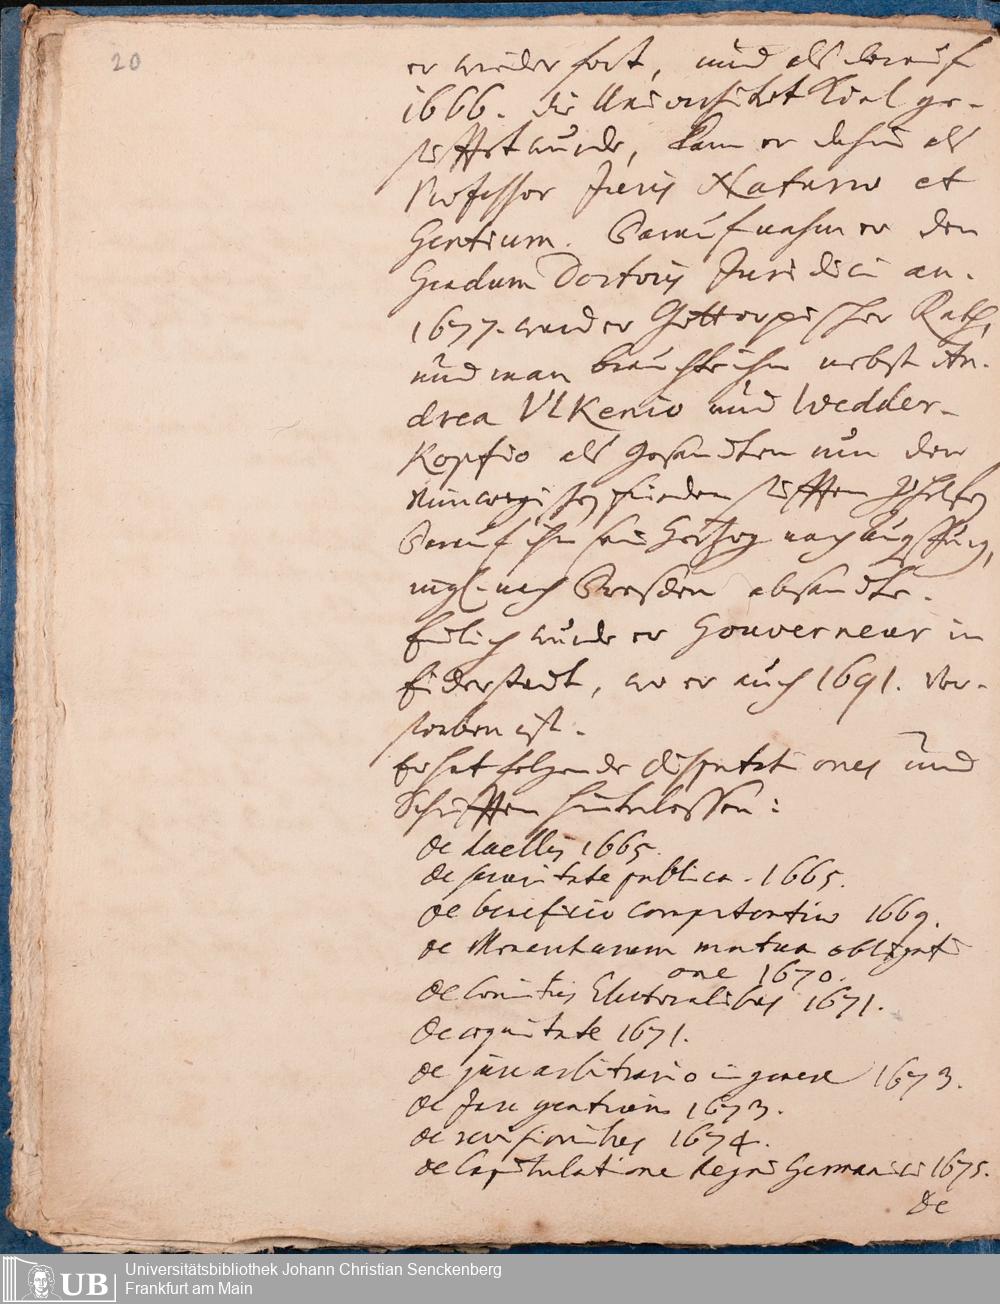 20
er wieder fort, und als darauf
1666. die Universitæt Kiel ge-
stifftet wurde, kam er dahin als
Professor Juris Naturæ et
Gentium. Darauf nahm er den
Gradum Doctoris Juridici an.
1677. ward er Gottorpischer Rath,
und man brauchte ihn nebst An-
drea Ulkenio und Wedder-
Kopfio als Gesandten um den
Nimwegischen frieden stifften zu helfen
Darauf ihn sein Hertzog nach Augspurg,
ingl. nach Dresden absandte.
Endlich wurde er Gouverneur in
Eiderstadt, wo er auch 1691. ver-
storben ist.
Er hat folgende disputationes und
Schrifften hinterlassen:
de duellis 1665.
de securitate publica. 1665.
de beneficio competentiæ 1669.
de Monarcharum mutua obligati
one 1670.
de Comitiis Electoralibus 1671.
de æquitate 1671.
de jure arbitrario in genere 1673.
de Jure gentium 1673.
de revisionibus 1674.
de Capitulatione Regni Germanici 1675.
de
UB
Universitätsbibliothek Johann Christian Senckenberg
Frankfurt am Main